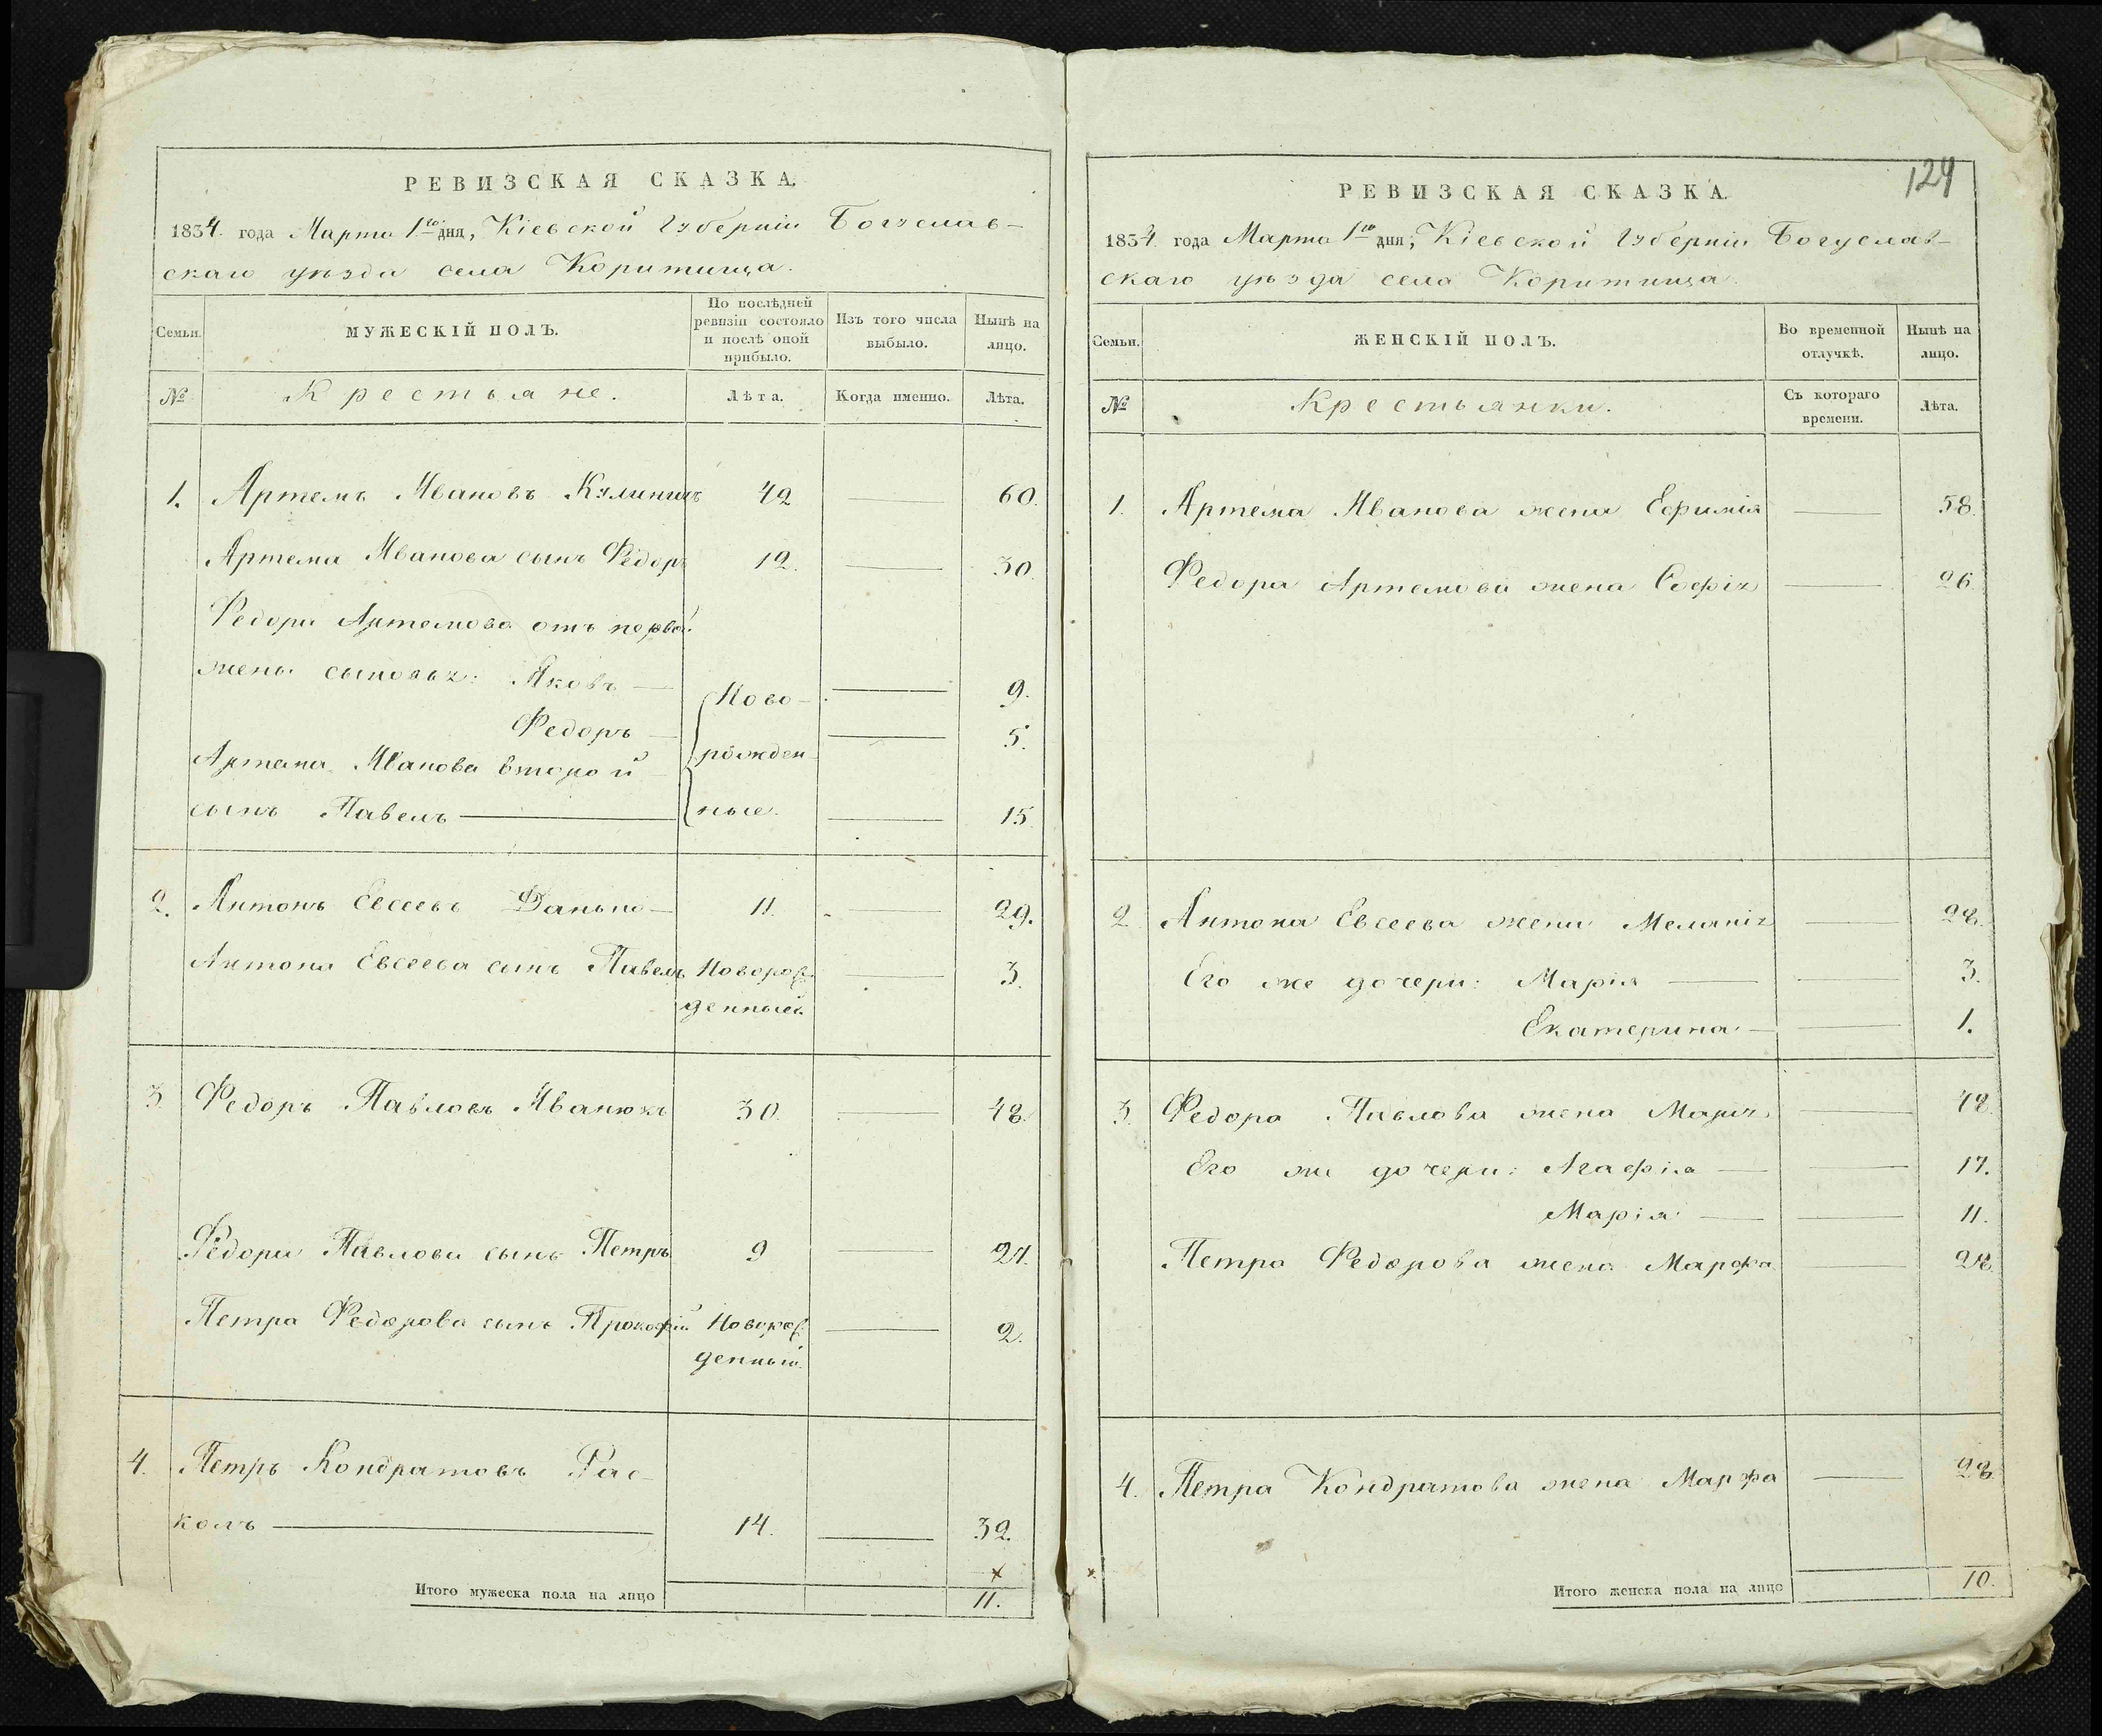 РЕВИЗСКАЯ СКАЗКА.
1834 года Марта 1го дня, Кіевской Губерніи Богуслав-
скаго уѣзда села Коритища.
Семьи.
МУЖЕСКІЙ ПОЛЪ.
По послѣдней
ревизіи состояло
и послѣ оной
прибыло.
Изъ того числа
выбыло.
Нынѣ на
лицо.
№
Крестьяне.
Лѣта.
Когда именно.
Лѣта.
1. Артемъ Ивановъ 42 60.
Артема Иванова сынъ Федоръ 12. 30.
Федора Артемова отъ первой
жены сыновья: Яковъ Ново- 9.
Федоръ 5.
Артема Иванова второй рожден-
сынъ Павелъ ные. 15
2. Антонъ Евсеевъ 11. 29.
Антона Евсеева сынъ Павелъ Новорож- 3.
денный.
3. Федоръ Павловъ Иванюкъ 30. 48.
Федора Павлова сынъ Петръ 9 27.
Петра Федорова сынъ Прокофій Новорож- 2.
денный.
4. Петръ Кондратовъ Рас-
колъ 14. 32.
Итого мужеска пола на лицо 11.
124
РЕВИЗСКАЯ СКАЗКА.
1834 года Марта 1го дня, Кіевской Губерніи Богуслав-
скаго уѣзда села Коритища.
Семьи.
ЖЕНСКІЙ ПОЛЪ.
Во временной
отлучкѣ.
Нынѣ на
лицо.
№
Крестьянки.
Съ котораго
времени.
Лѣта.
1. Артема Иванова жена Ефимія 58.
Федора Артемова жена Софія 26.
2 Антона Евсеева жена Меланія 28.
Его же дочери: Марія 3.
Екатерина 1.
3. Федора Павлова жена Марія 48.
Его же дочери: Агафія 17.
Марія 11.
Петра Федорова жена Марфа 28.
4. Петра Кондратова жена Марфа 28
Итого женска пола на лицо 10.